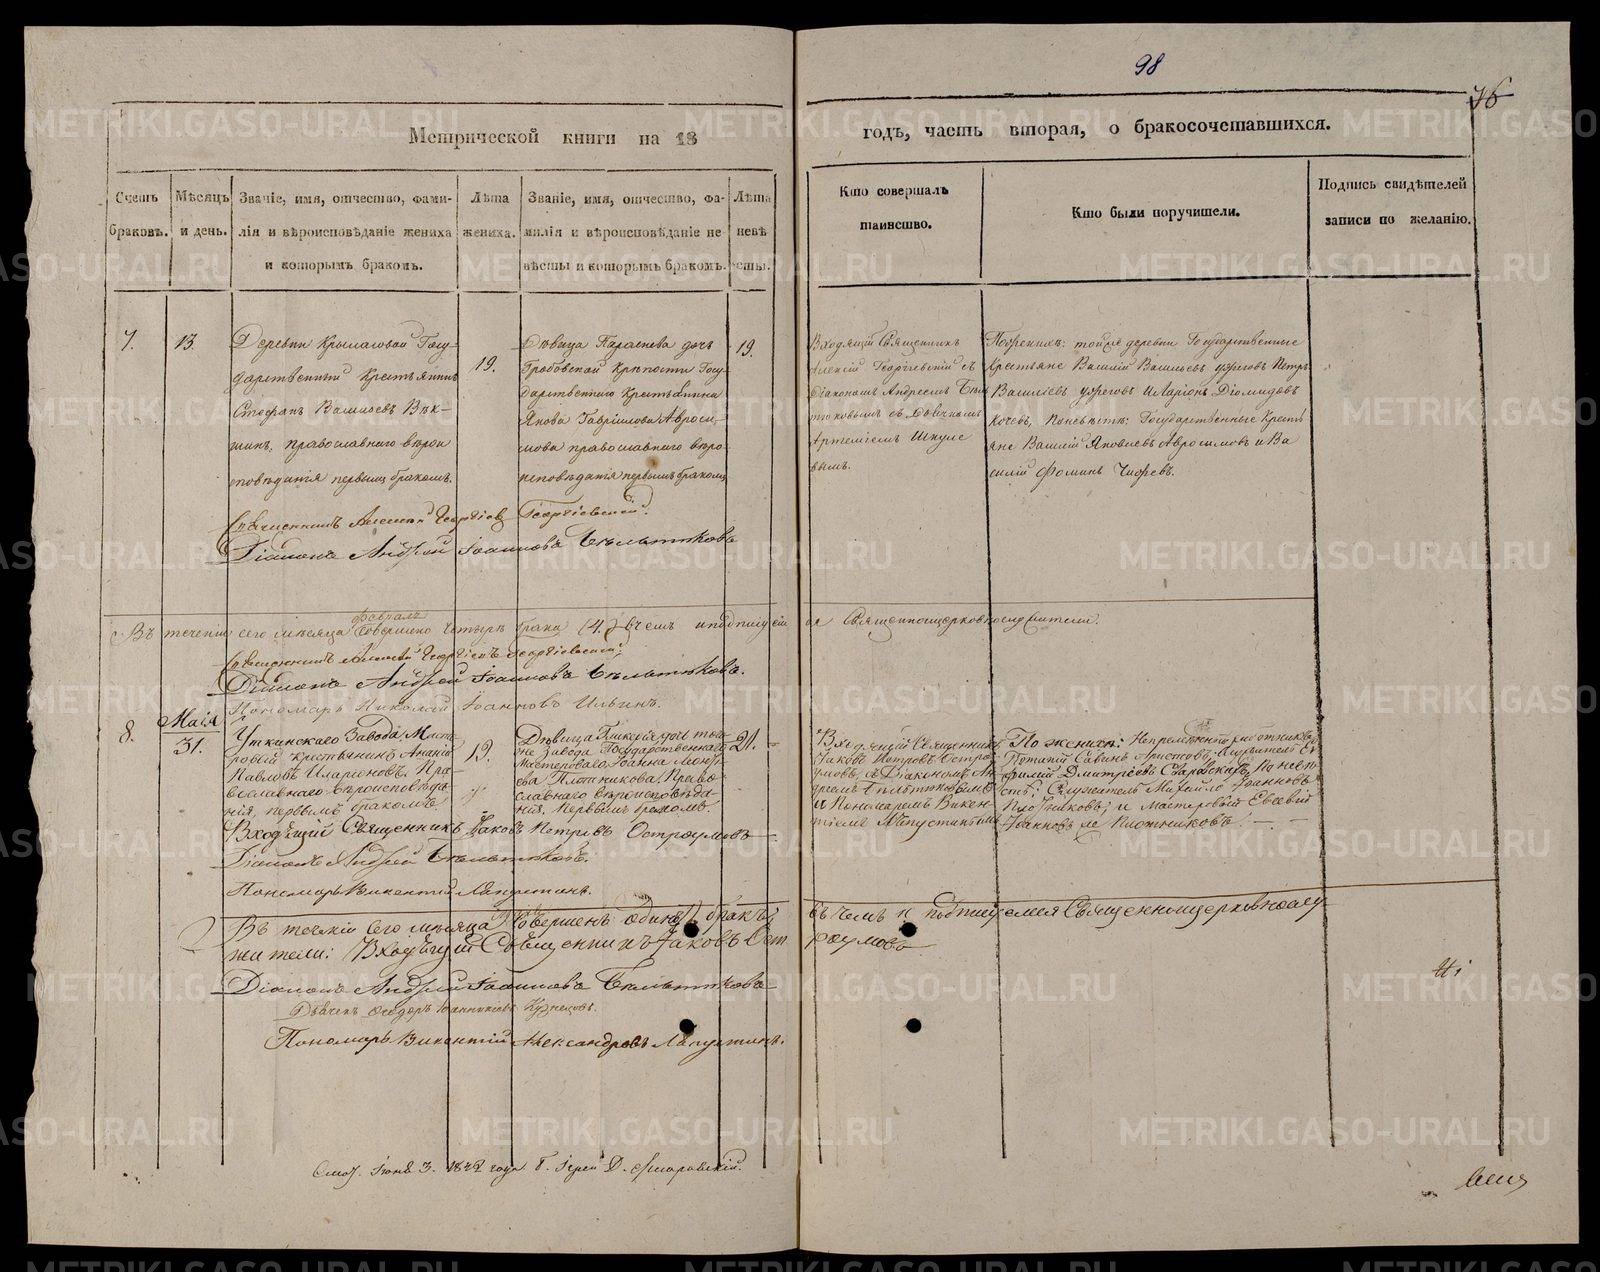 98
76
Метрической книги на 18
годъ, часть вторая, о бракосочетавшихся.
Счетъ браковъ.
Мѣсяцъ и день.
Званіе, имя, отчество, фами-
лія и вѣроисповѣданіе жениха
и которымъ бракомъ.
Лѣта жениха.
Званіе, имя, отчество, фа-
милія и вѣроисповѣданіе не-
вѣсты и которымъ бракомъ.
Лѣта невѣсты.
Кто совершалъ
таинство.
Кто были поручители.
Подпись свидѣтелей
записи по желанію.
7.
13.
Деревни Крылатовой Госу-
дарственный Крестьянинъ
Стефанъ Васильевъ Вяк-
шинъ, православнаго вѣрои
сповѣданія первымъ бракомъ.
19.
Дѣвица Параскева дочь
Гробовской Крѣпости Госу-
дарственнаго Крестьянина
Якова Гаврилова Авроси-
мова православнаго вѣро-
исповѣданія первымъ бракомъ
19.
Входящій Священникъ
Алексій Георгіевскій съ
Діакономъ Андреемъ Бѣль
тюковымъ съ Дьячкомъ
Артеміемъ
вымъ.
Пожених: тойже деревни Государственные
Крестьяне Василій Васильевъ Петръ
Васильевъ Иларіонъ Діомидовъ
Поневѣстѣ: Государственные Кресть
яне Василій Яковлевъ Авросимовъ и Ва
силій Фоминъ
Священникъ Алексій Георгіевъ Георгіевскій.
Діаконъ Андрей Іоанновъ Бѣльтюковъ
февралѣ
Въ теченіи сего мѣсяца Совершено Четыре брака (4.) въ чемъ и подписуем
ся Священноцерковнослужители.
Священникъ Алексій Георгіевъ Георгіевскій
Діаконъ Андрей Іоанновъ Бѣльтюковъ.
Пономарь Николай Іоанновъ Ильинъ.
8.
Маія
31.
Уткинскаго Завода Масте-
ровый крестьянинъ Ананій
Павловъ Иларіоновъ, Пра-
вославнаго вѣроисповѣда
нія, первымъ бракомъ
19.
Дѣвица дочь той
же Завода Государственнаго
Мастероваго Іоанна
ева Плотникова, Право-
славнаго вѣроисповѣда-
нія. Первымъ бракомъ
21.
Входящій Священникъ
Іаковъ Петровъ Остро
умовъ, съ Діакономъ Ан
дреемъ Бѣльтюковымъ
и Пономаремъ Викен-
тіемъ Лапустинымъ
По женихѣ: Непремѣнный работникъ
Потапій Савинъ Аристовъ. Служитель
филій Дмитріевъ По невѣ
стѣ: Служитель Михайло Іоанновъ
и мастеровый Евсевій
Іоанновъ же Плотниковъ.
Входящій Священникъ Іаковъ Петровъ Остроумовъ
Діаконъ Андрей Бѣльтюковъ.
Пономарь Викентій Лапустинъ.
Въ теченіи сего мѣсяца Совершенъ Одинъ (1) бракъ;
въ чемъ и подписуемся Священноцерковнослу-
жители: Входящій Священникъ Іаковъ Ост
роумовъ
Діаконъ Андрей Іоанновъ Бѣльтюковъ
Дьячекъ Ѳеодоръ Іоанникіевъ Кузнецовъ.
Пономарь Викентій Александровъ Лапустинъ.
Іюня 3. 1842 года Іерей Д.
METRIKI.GASO-URAL.RU